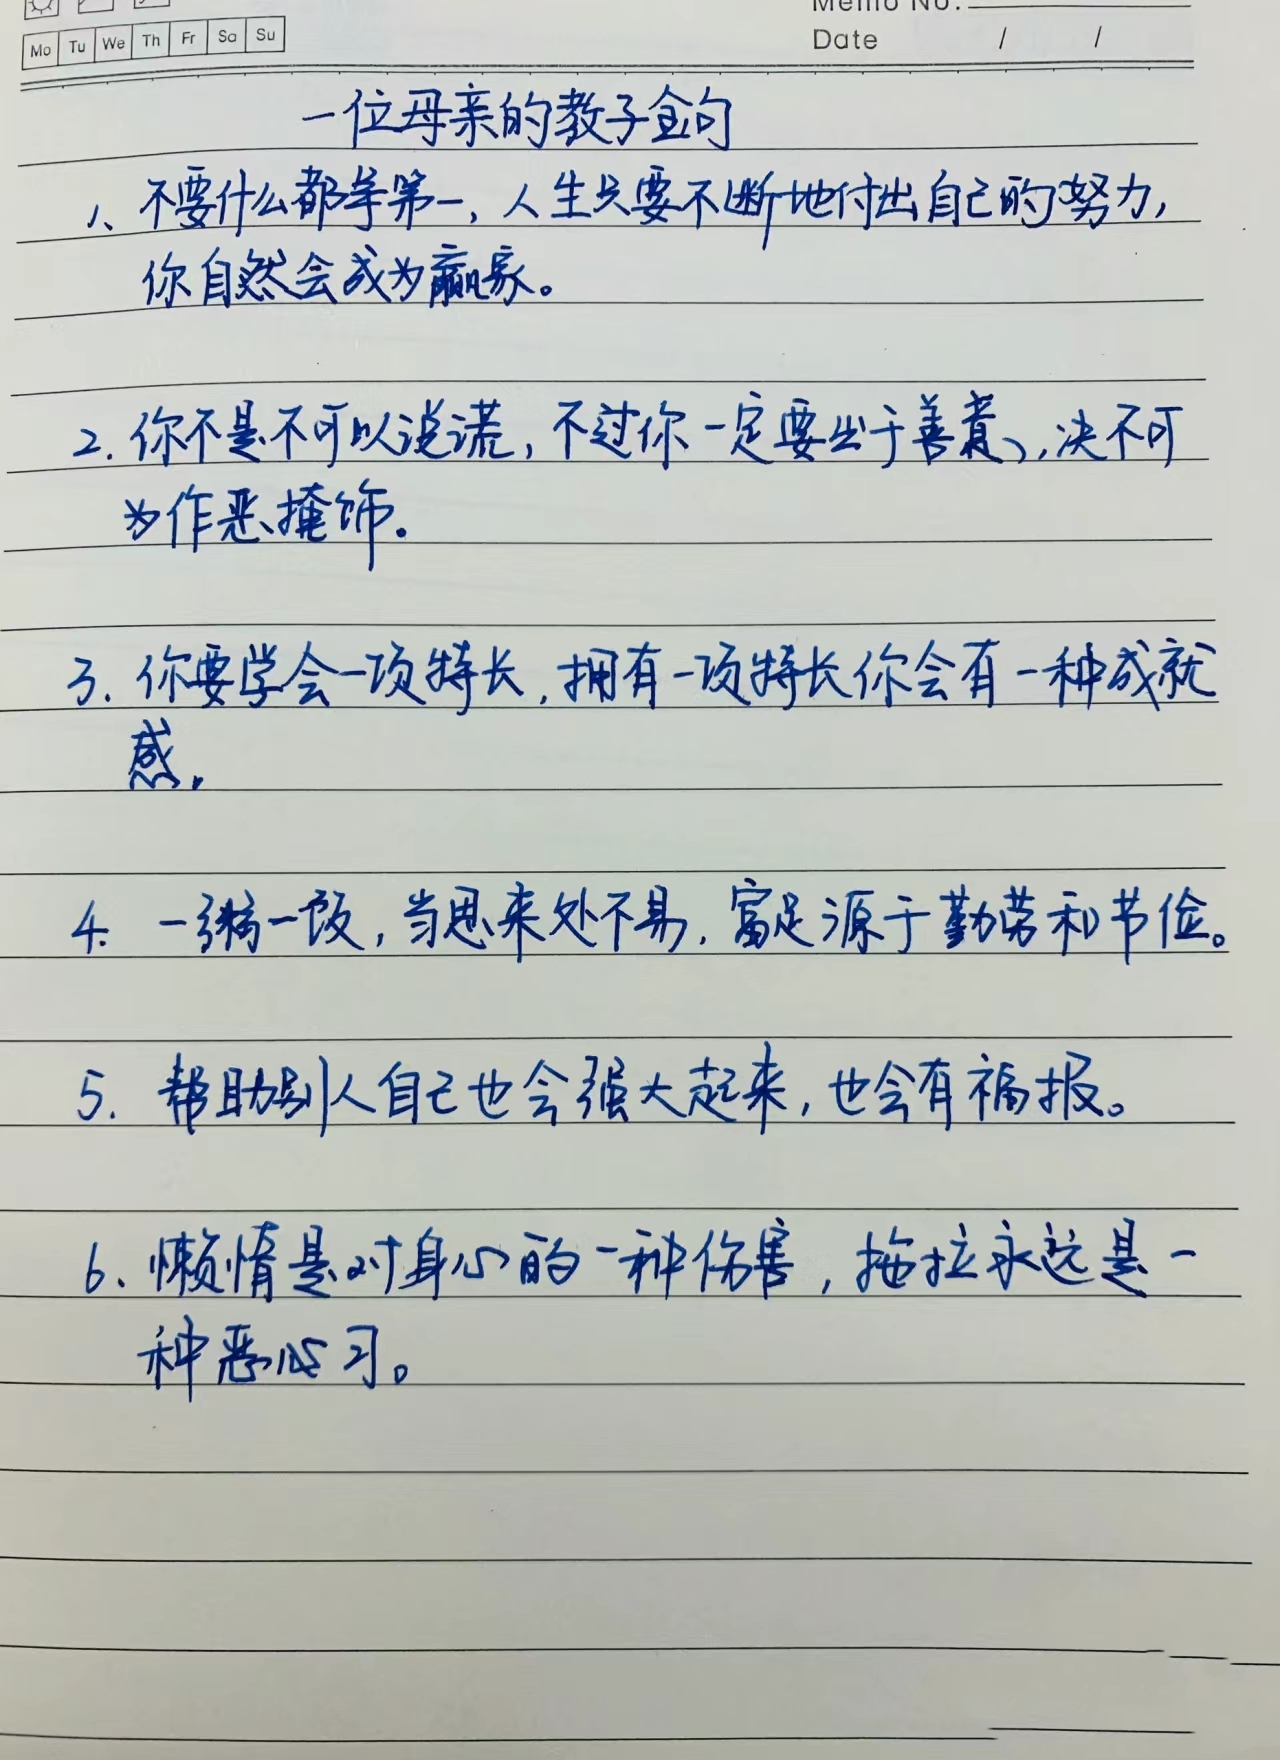 Memo No.:
Mo Tu We Th Fr Sa Su
Date / /
一位母亲的教子金句
1、不要什么都争第一，人生只要不断地付出自己的努力，
你自然会成为赢家。
2. 你不是不可以说谎，不过你一定要出于善意，决不可
为作恶掩饰。
3. 你要学会一项特长，拥有一项特长你会有一种成就
感。
4. 一粥一饭，当思来处不易，富足源于勤劳和节俭。
5. 帮助别人自己也会强大起来，也会有福报。
6、懒惰是对身心的一种伤害，拖拉永远是一
种恶习。